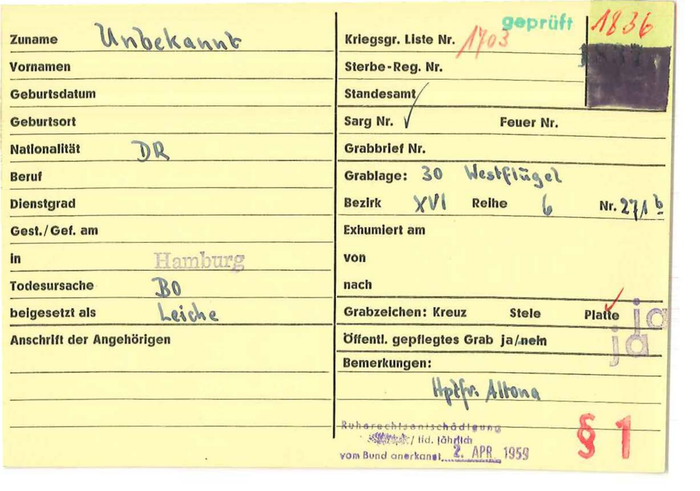 geprüft 1836
Zuname Unbekannt
Vornamen
Geburtsdatum
Geburtsort
Nationalität DR
Beruf
Dienstgrad
Gest./Gef. am
in Hamburg
Todesursache BO
beigesetzt als Leiche
Anschrift der Angehörigen
Kriegsgr. Liste Nr. 1703
Sterbe-Reg. Nr.
Standesamt
Sarg Nr. Feuer Nr.
Grabbrief Nr.
Grablage: 30 Westflügel
Bezirk XVI Reihe 6 Nr. 271b
Exhumiert am
von
nach
Grabzeichen: Kreuz Stele Platte ja
Öffentl. gepflegtes Grab ja/nein ja
Bemerkungen:
Hptfr. Altona
Ruherechtsentschädigung
/ lfd. jährlich
vom Bund anerkannt 2. APR. 1959
§ 1